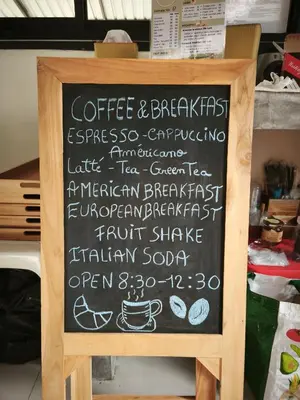 COFFEE & BREAKFAST
ESPRESSO - CAPPUCCINO
Americano
Latté - Tea - Green Tea
AMERICAN BREAKFAST
EUROPEAN BREAKFAST
FRUIT SHAKE
ITALIAN SODA
OPEN 8:30-12:30